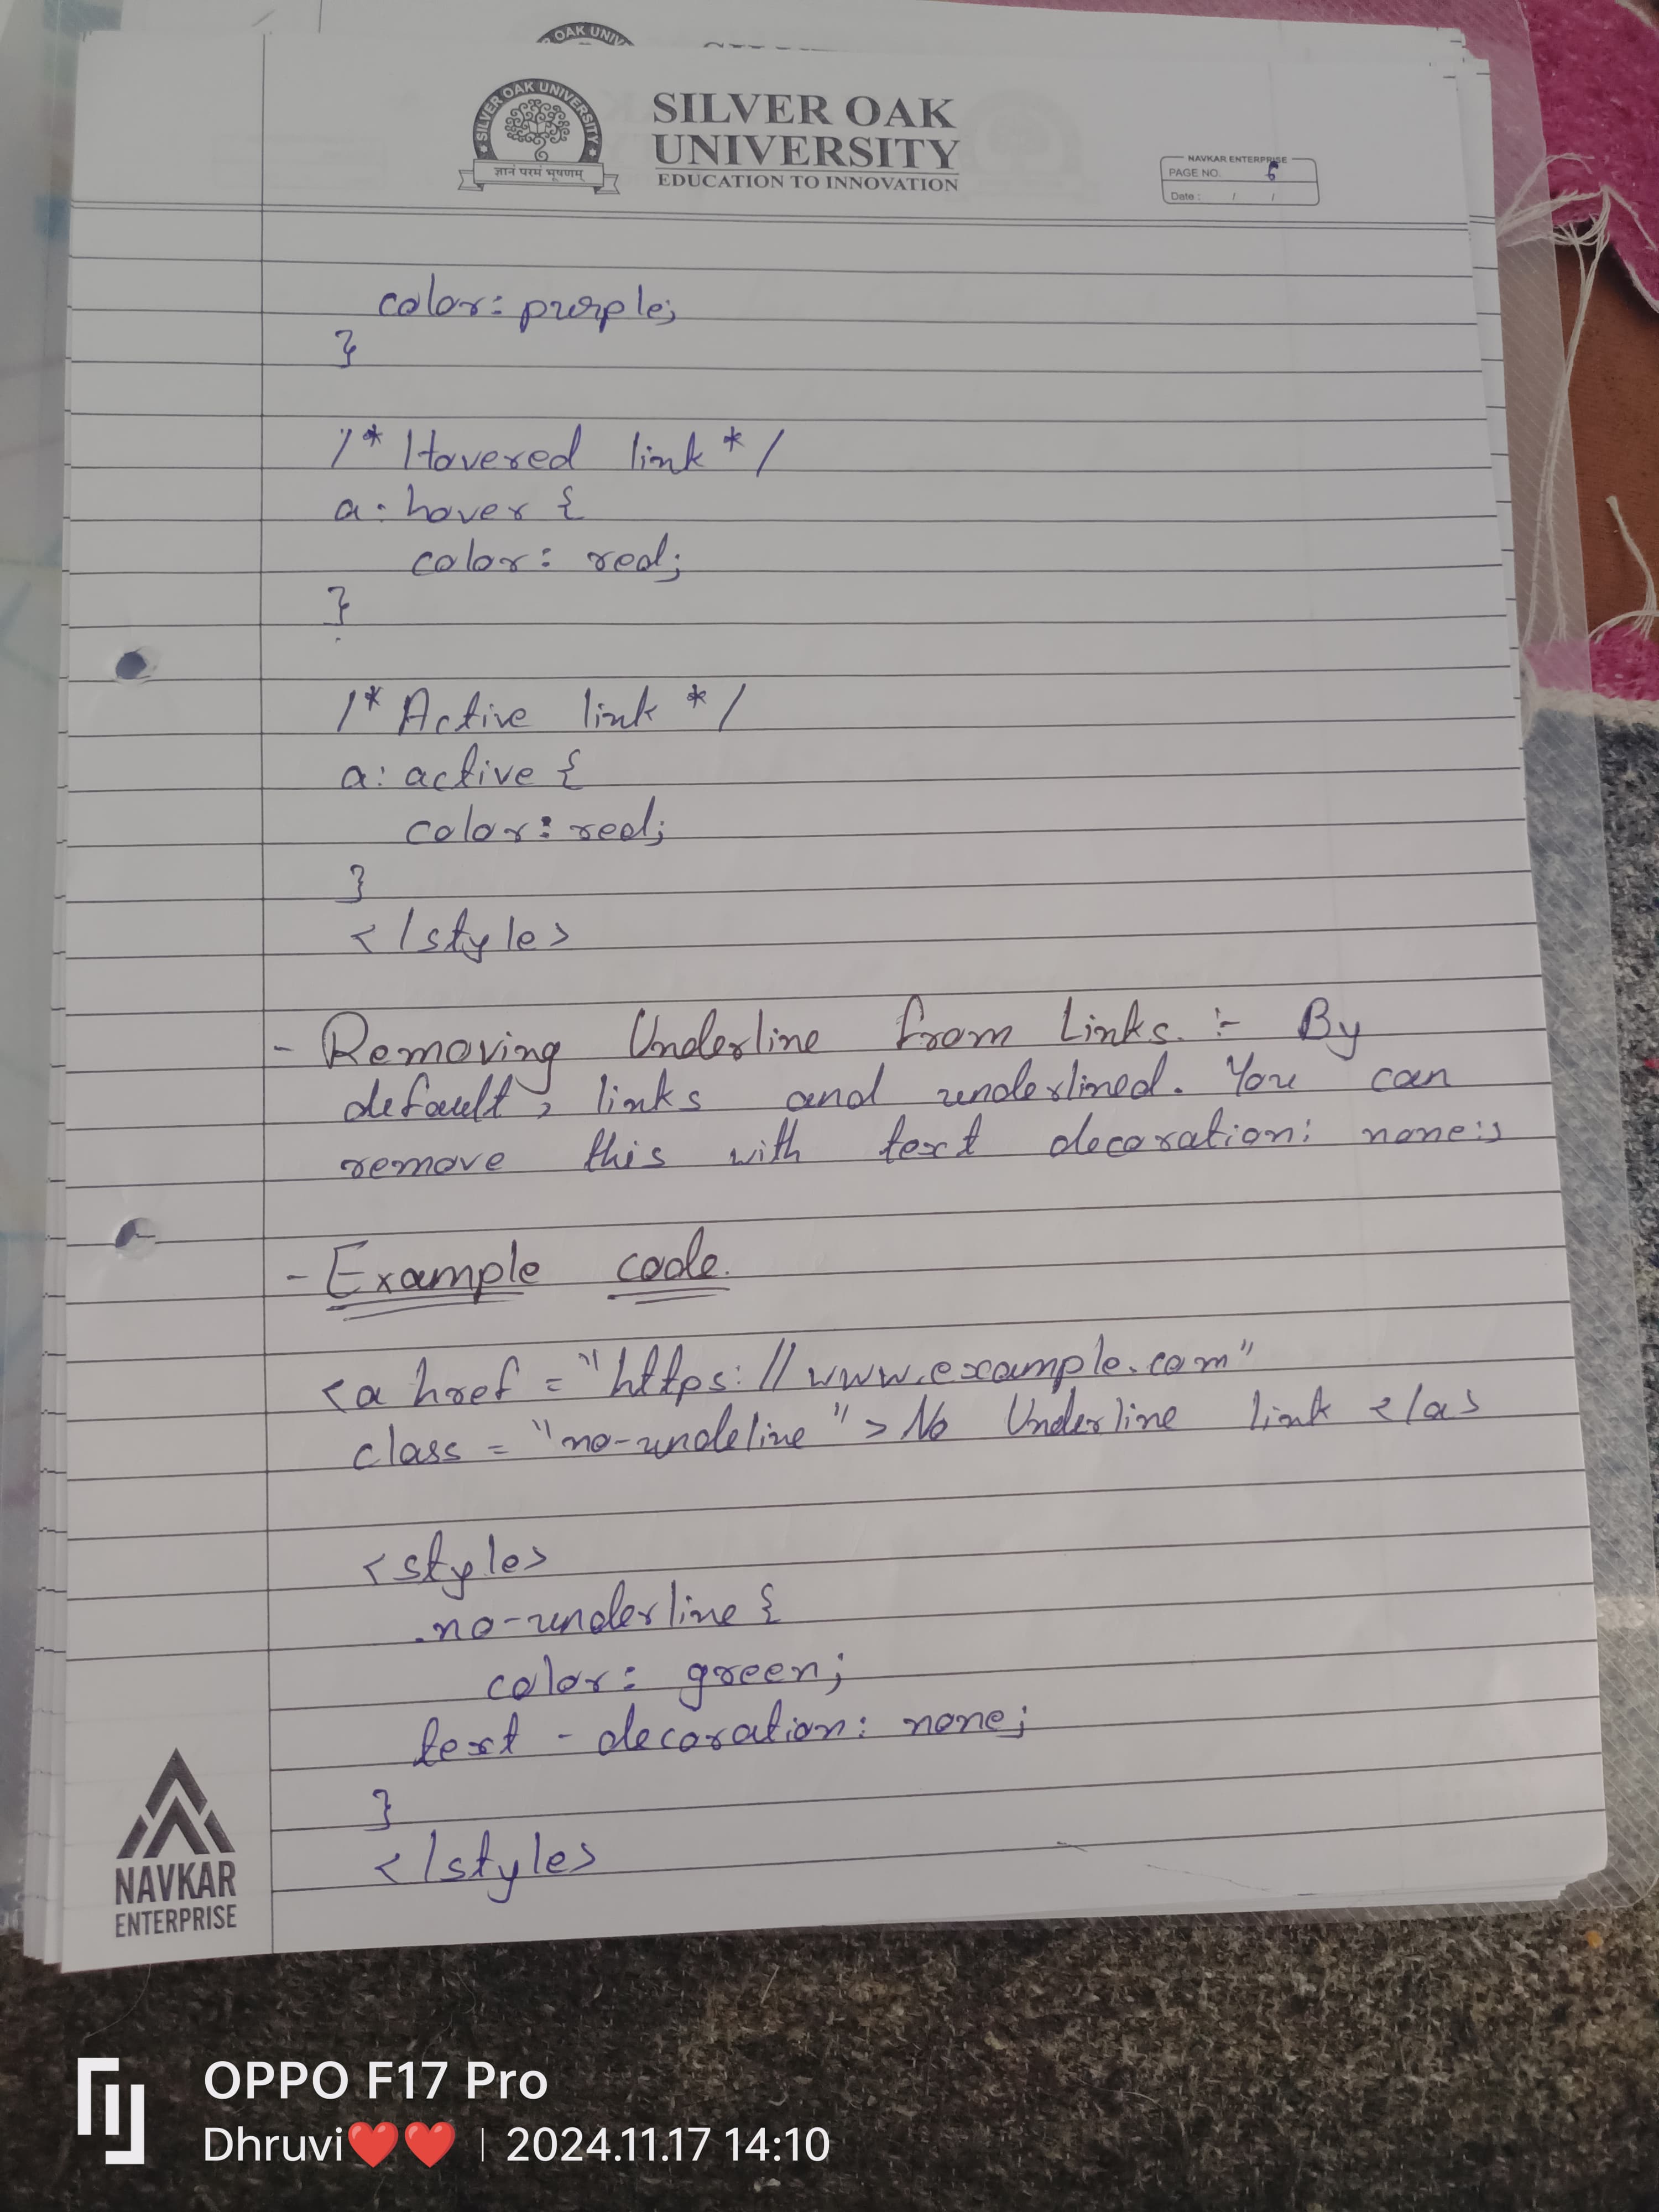 OAK UNIV
SILVER OAK UNIVERSITY
ज्ञानं परमं भूषणम्
SILVER OAK
UNIVERSITY
EDUCATION TO INNOVATION
NAVKAR ENTERPRISE
PAGE NO. 6
Date : / /
color: purple;
}
/* Hovered link */
a: hover {
color: red;
}
/* Active link */
a: active {
color: red;
}
</style>
- Removing Underline from Links. :- By
default, links and underlined. You can
remove this with text decoration: none:;
- Example code.
<a href = "https://www.example.com"
class = "no-undeline" > No Underline link </a>
<style>
.no-underline {
color: green;
text - decoration: none;
}
</style>
NAVKAR
ENTERPRISE
OPPO F17 Pro
Dhruvi❤️❤️ | 2024.11.17 14:10